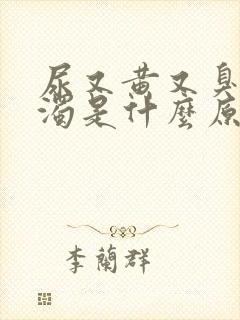 尿又黃又臭
濁是什麼原
李蘭群